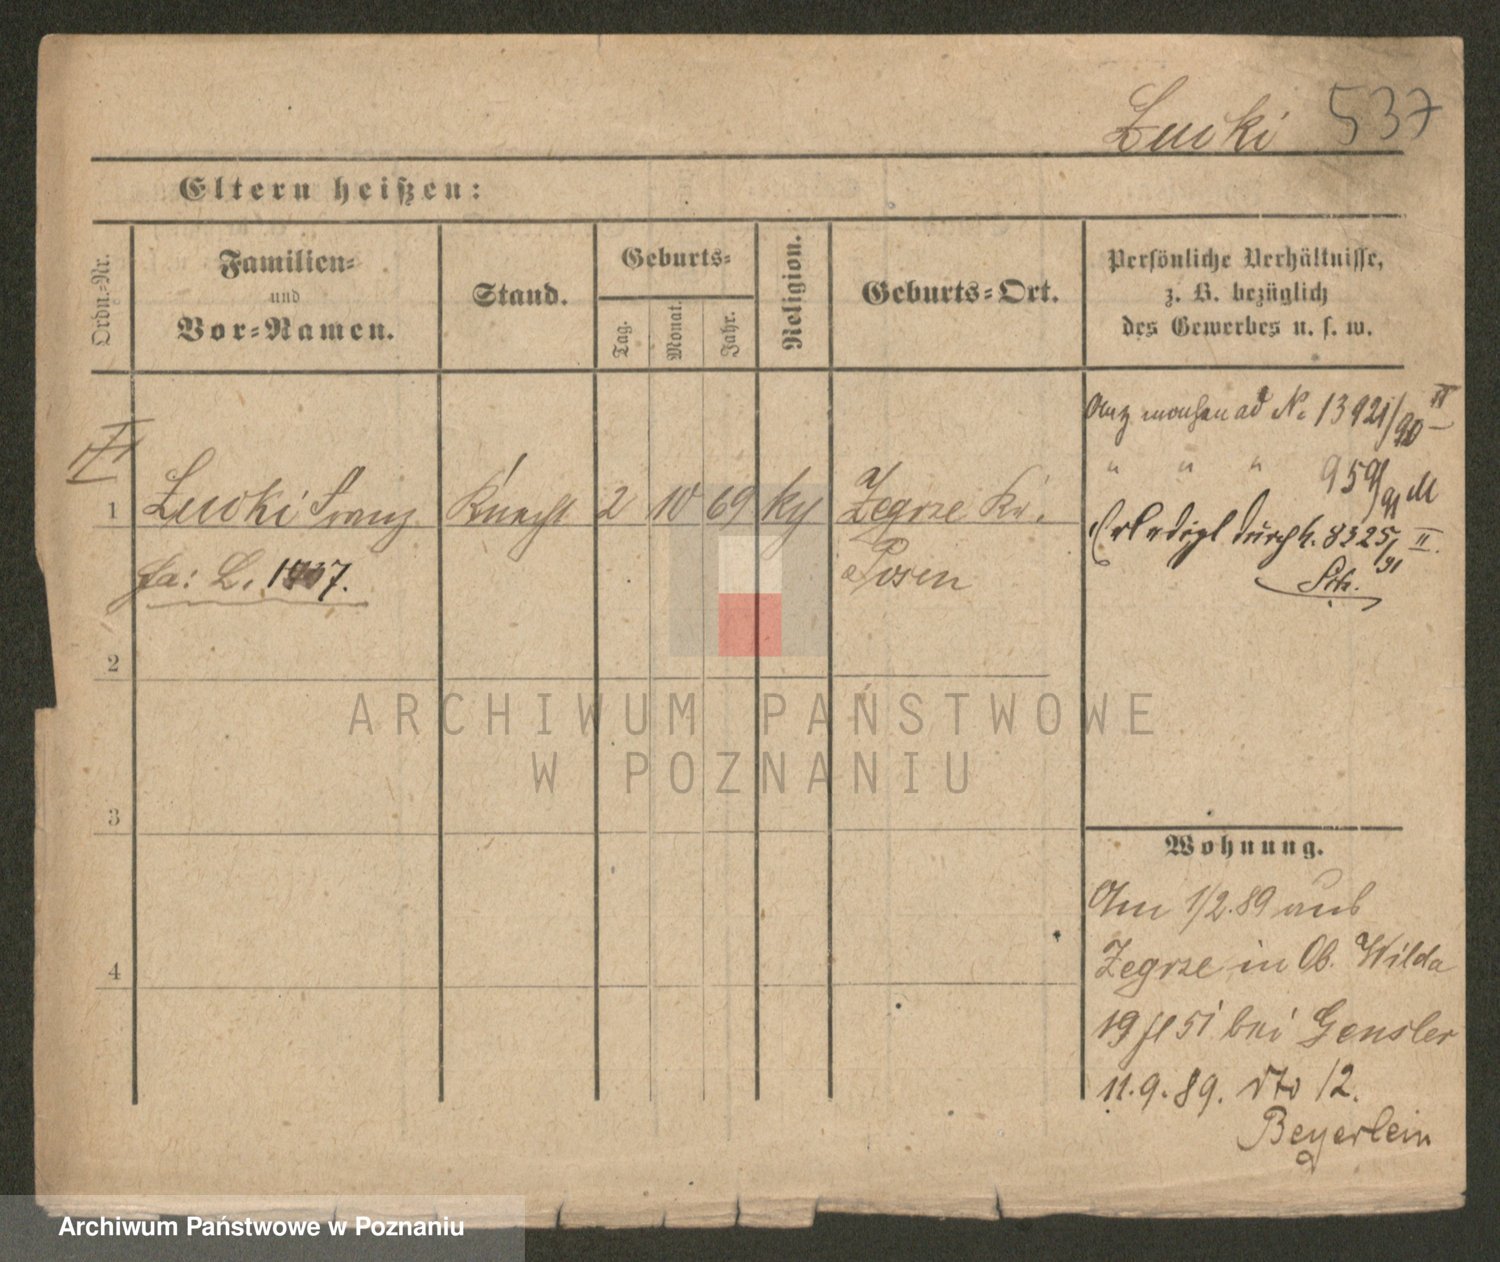 Łucki 537
Eltern heißen:
Ordn.-Nr.
Familien-
und
Vor-Namen.
Stand.
Geburts-
Tag.
Monat.
Jahr.
Religion.
Geburts-Ort.
Persönliche Verhältnisse,
z. B. bezüglich
des Gewerbes u. s. w.
ad No 13921/90 II
" " " 959/91 M
Erledigt durch 8325/91 II.
1 Łucki Franz Knecht 2 10 69 kth Zegrze Kr.
fa: L. 1937. Posen
2
3
4
ARCHIWUM PAŃSTWOWE
W POZNANIU
Wohnung.
Am 1/2.89 aus
Zegrze in Ob. Wilda
19 51 bei Gensler
11.9.89. dto 12.
Beyerlein
Archiwum Państwowe w Poznaniu